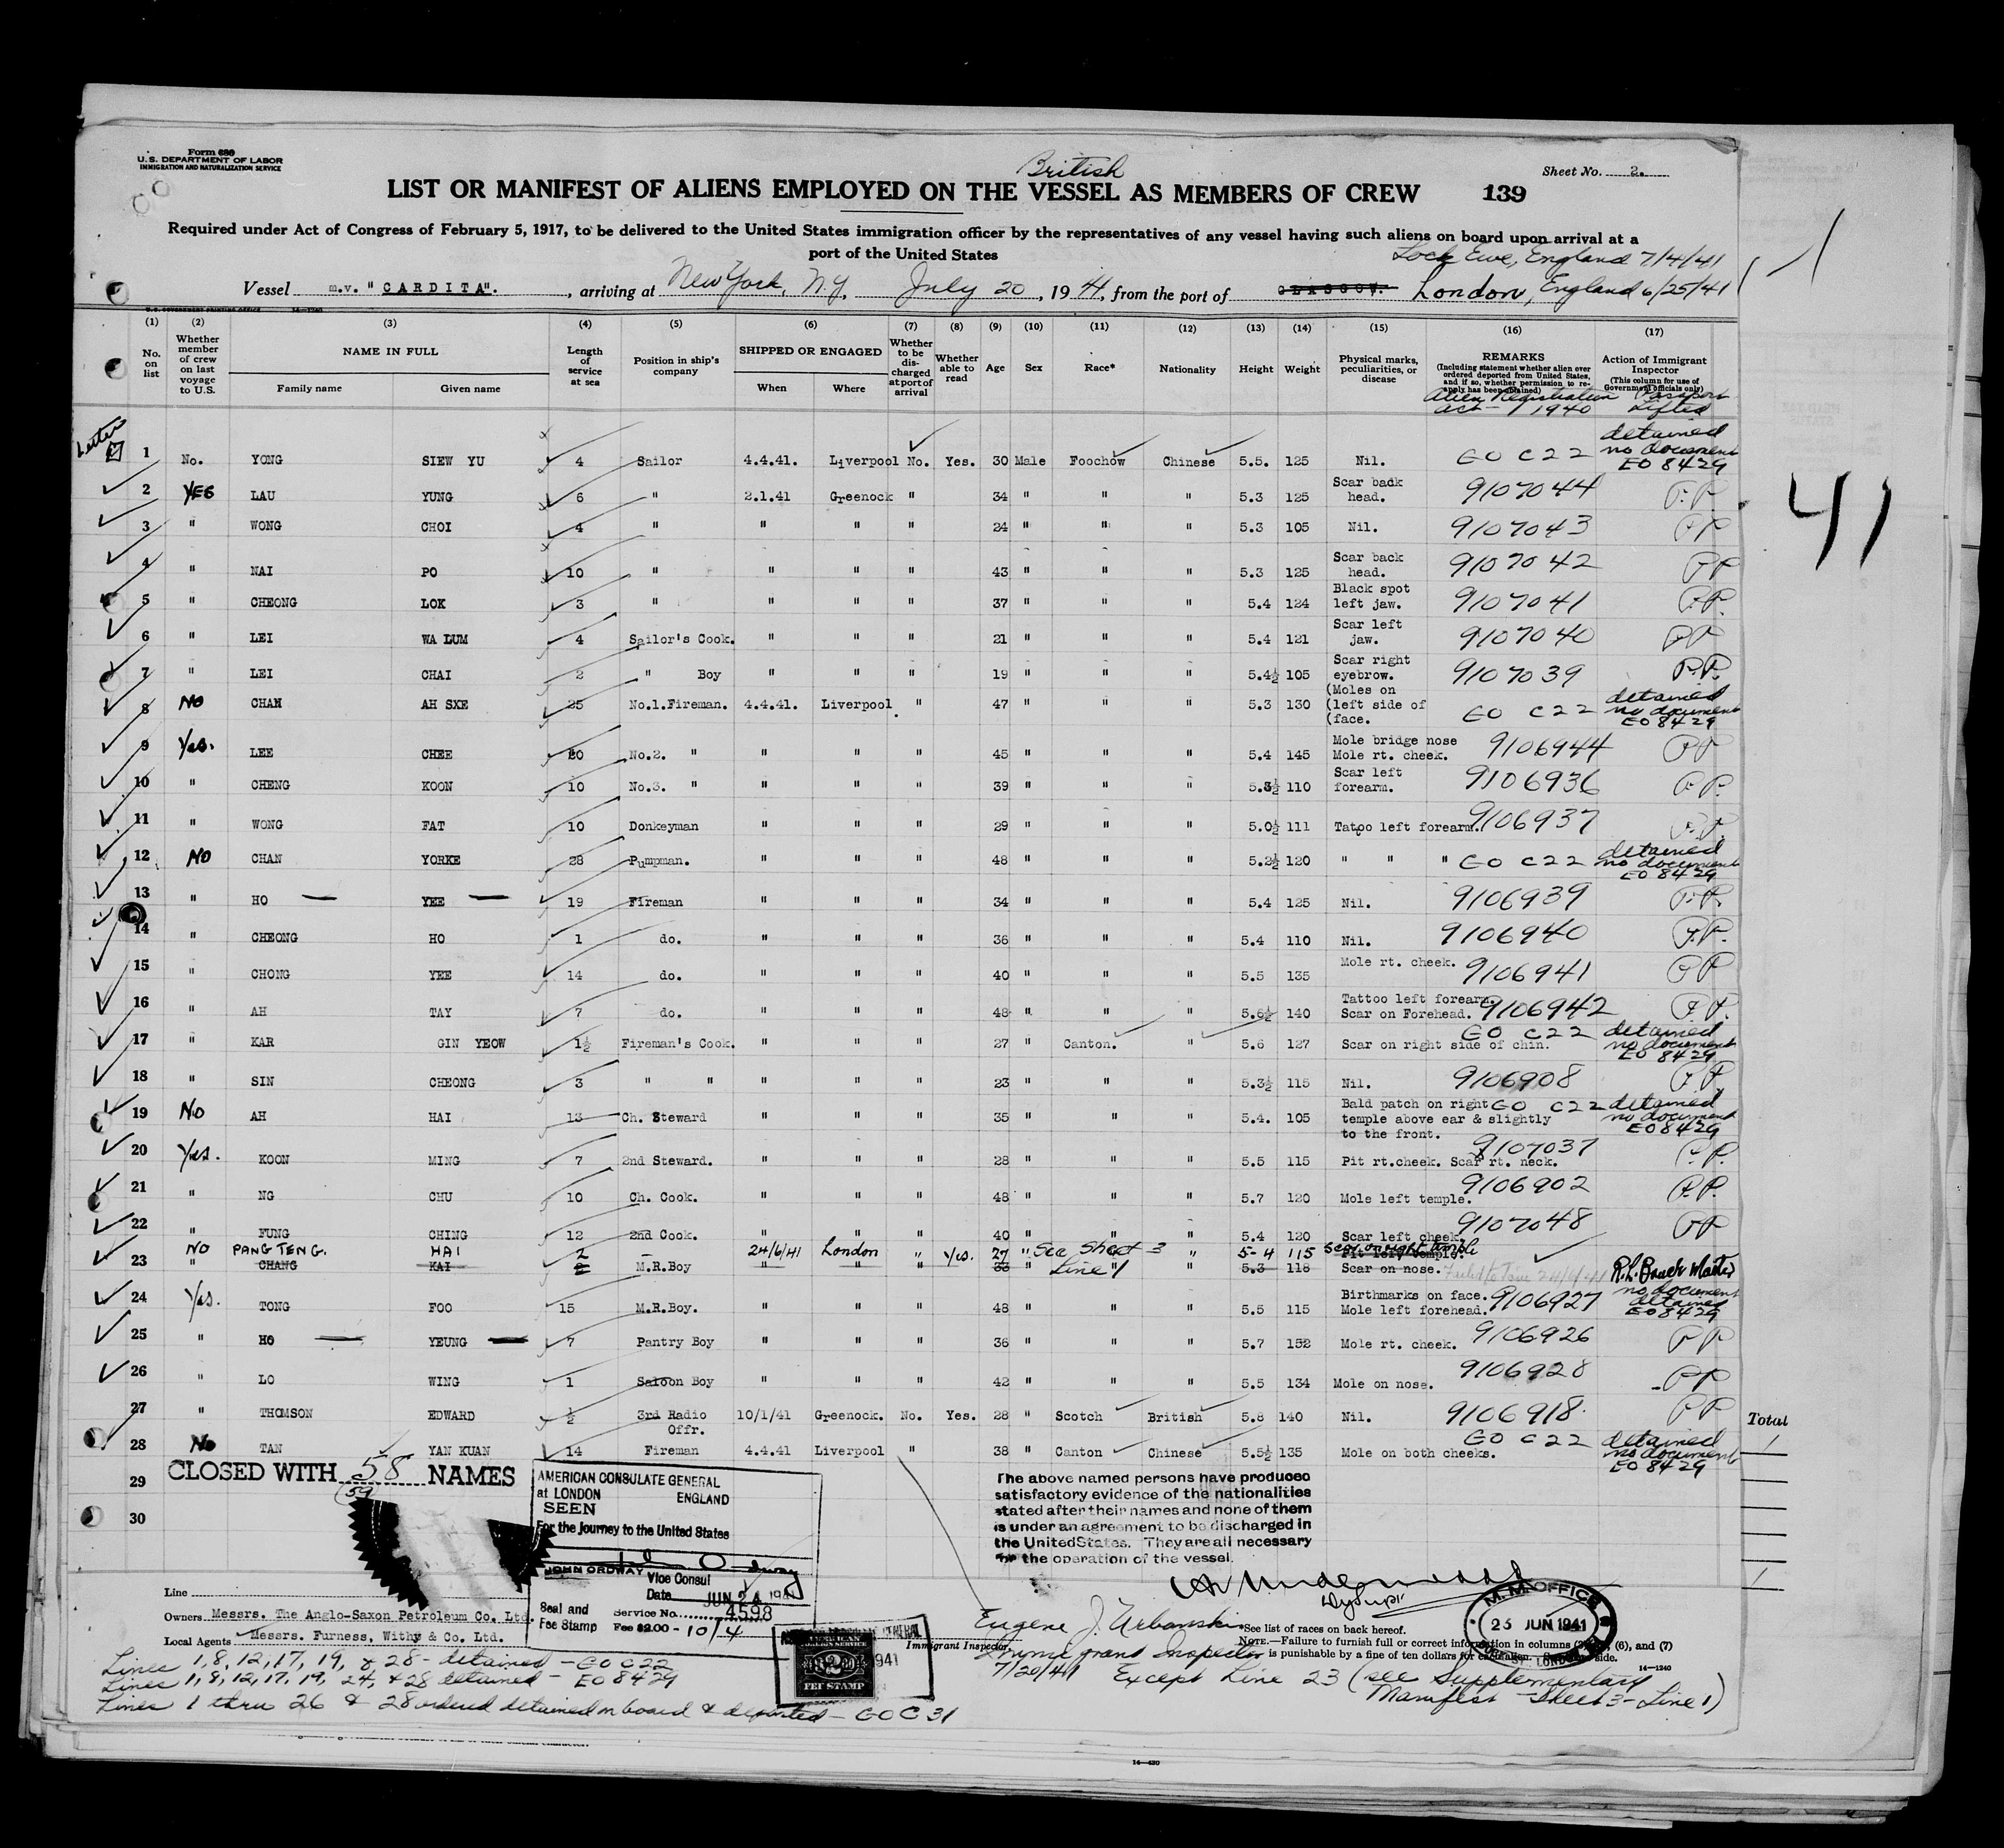 Form 680
U.S. DEPARTMENT OF LABOR
IMMIGRATION AND NATURALIZATION SERVICE
Sheet No. 2.
British
LIST OR MANIFEST OF ALIENS EMPLOYED ON THE VESSEL AS MEMBERS OF CREW 139
Required under Act of Congress of February 5, 1917, to be delivered to the United States immigration officer by the representatives of any vessel having such aliens on board upon arrival at a
port of the United States
Lock Ewe, England 7/4/41
Vessel m.v. "CARDITA". , arriving at New York, N.Y. July 20, 1941, from the port of GLASGOW. London, England 6/25/41
(1) (2) (3) (4) (5) (6) (7) (8) (9) (10) (11) (12) (13) (14) (15) (16) (17)
No. on list Whether member of crew on last voyage to U.S. NAME IN FULL Family name Given name Length of service at sea Position in ship's company SHIPPED OR ENGAGED When Where Whether to be discharged at port of arrival Whether able to read Age Sex Race* Nationality Height Weight Physical marks, peculiarities, or disease REMARKS (Including statement whether alien ever ordered deported from United States, and if so, whether permission to reapply has been obtained) Action of Immigrant Inspector (This column for use of Government officials only)
Alien Registration Act - 1940 Passport Lifted
Letter
1 No. YONG SIEW YU 4 Sailor 4.4.41. Liverpool No. Yes. 30 Male Foochow Chinese 5.5. 125 Nil. GO C22 detained no document EO 8429
2 YES LAU YUNG 6 " 2.1.41 Greenock " 34 " " " 5.3 125 Scar back head. 9107044 P.P.
3 " WONG CHOI 4 " " " " 24 " " " 5.3 105 Nil. 9107043 PP
4 " NAI PO 10 " " " " 43 " " " 5.3 125 Scar back head. 9107042 PP
5 " CHEONG LOK 3 " " " " 37 " " " 5.4 124 Black spot left jaw. 9107041 P.P.
6 " LEI WA LUM 4 Sailor's Cook. " " " 21 " " " 5.4 121 Scar left jaw. 9107040 PP
7 " LEI CHAI 2 " Boy " " " 19 " " " 5.4½ 105 Scar right eyebrow. 9107039 P.P.
8 NO CHAN AH SXE 25 No.1.Fireman. 4.4.41. Liverpool. " 47 " " " 5.3 130 (Moles on (left side of (face. GO C22 detained no document EO 8429
9 Yes. LEE CHEE 20 No.2. " " " " 45 " " " 5.4 145 Mole bridge nose Mole rt. cheek. 9106944 PP
10 " CHENG KOON 10 No.3. " " " " 39 " " " 5.3½ 110 Scar left forearm. 9106936 P.P.
11 " WONG FAT 10 Donkeyman " " " 29 " " " 5.0½ 111 Tatoo left forearm. 9106937 P.P.
12 NO CHAN YORKE 28 Pumpman. " " " 48 " " " 5.2½ 120 " " " GO C22 detained no document EO 8429
13 " HO YEE 19 Fireman " " " 34 " " " 5.4 125 Nil. 9106939 P.P.
14 " CHEONG HO 1 do. " " " 36 " " " 5.4 110 Nil. 9106940 P.P.
15 " CHONG YEE 14 do. " " " 40 " " " 5.5 135 Mole rt. cheek. 9106941 PP
16 " AH TAY 7 do. " " " 48 " " " 5.6½ 140 Tattoo left forearm. Scar on Forehead. 9106942 P.P.
17 " KAR GIN YEOW 1½ Fireman's Cook. " " " 27 " Canton. " 5.6 127 Scar on right side of chin. GO C22 detained no document EO 8429
18 " SIN CHEONG 3 " " " " " 23 " " " 5.3½ 115 Nil. 9106908 P.P
19 NO AH HAI 13 Ch. Steward " " " 35 " " " 5.4. 105 Bald patch on right temple above ear & slightly to the front. GO C22 detained no document EO 8429
20 Yes. KOON MING 7 2nd Steward. " " " 28 " " " 5.5 115 Pit rt.cheek. Scar rt. neck. 9107037 P.P.
21 " NG CHU 10 Ch. Cook. " " " 48 " " " 5.7 120 Mole left temple. 9106902 P.P.
22 " FUNG CHING 12 2nd Cook. " " " 40 " " " 5.4 120 Scar left cheek. 9107048 PP
23 NO PANG TENG. HAI 2 — 24/6/41 London " Yes. 27 " See Sheet 3 " 5-4 115 Scar on right temple
" CHANG KAI 2 M.R.Boy " " 38 Line 1 " 5.3 118 Pit left temple. Scar on nose. Failed to Join 24/6/41 R.L. Master
24 Yes. TONG FOO 15 M.R.Boy. " " " 48 " " " 5.5 115 Birthmarks on face. Mole left forehead. 9106927 no document detained EO 8429
25 " HO YEUNG 7 Pantry Boy " " " 36 " " " 5.7 152 Mole rt. cheek. 9106926 PP
26 " LO WING 1 Saloon Boy " " " 42 " " " 5.5 134 Mole on nose. 9106928 PP
27 " THOMSON EDWARD ½ 3rd Radio Offr. 10/1/41 Greenock. No. Yes. 28 " Scotch British 5.8 140 Nil. 9106918. PP
28 No TAN YAN KUAN 14 Fireman 4.4.41 Liverpool " 38 " Canton Chinese 5.5½ 135 Mole on both cheeks. GO C22 detained no document EO 8429
29
30
41
Total
CLOSED WITH 58 NAMES
(59)
AMERICAN CONSULATE GENERAL
at LONDON ENGLAND
SEEN
For the Journey to the United States
JOHN ORDWAY
Vice Consul
Date JUN 24 1941
Seal and Fee Stamp
Service No. 4598
Fee $2.00 - 10/4
The above named persons have produced
satisfactory evidence of the nationalities
stated after their names and none of them
is under an agreement to be discharged in
the United States. They are all necessary
for the operation of the vessel.
Dy Supt
M.M. OFFICE
25 JUN 1941
LONDON
Line
Owners Messrs. The Anglo-Saxon Petroleum Co. Ltd.
Local Agents Messrs. Furness, Withy & Co. Ltd.
AMERICAN FOREIGN SERVICE
$2
FEE STAMP
Eugene J. Urbanski
Immigrant Inspector
Immigrant Inspector
7/20/41
*See list of races on back hereof.
NOTE.—Failure to furnish full or correct information in columns (3), (6), and (7)
is punishable by a fine of ten dollars for each alien. See other side.
14—1240
Lines 1, 8, 12, 17, 19, & 28 - detained - GO C22
Lines 1, 8, 12, 17, 19, 24, & 28 detained - EO 8429
Lines 1 thru 26 & 28 ordered detained on board & deported - GO C 31
Except Line 23 (see Supplementary
Manifest - Sheet 3 - Line 1)
14—430